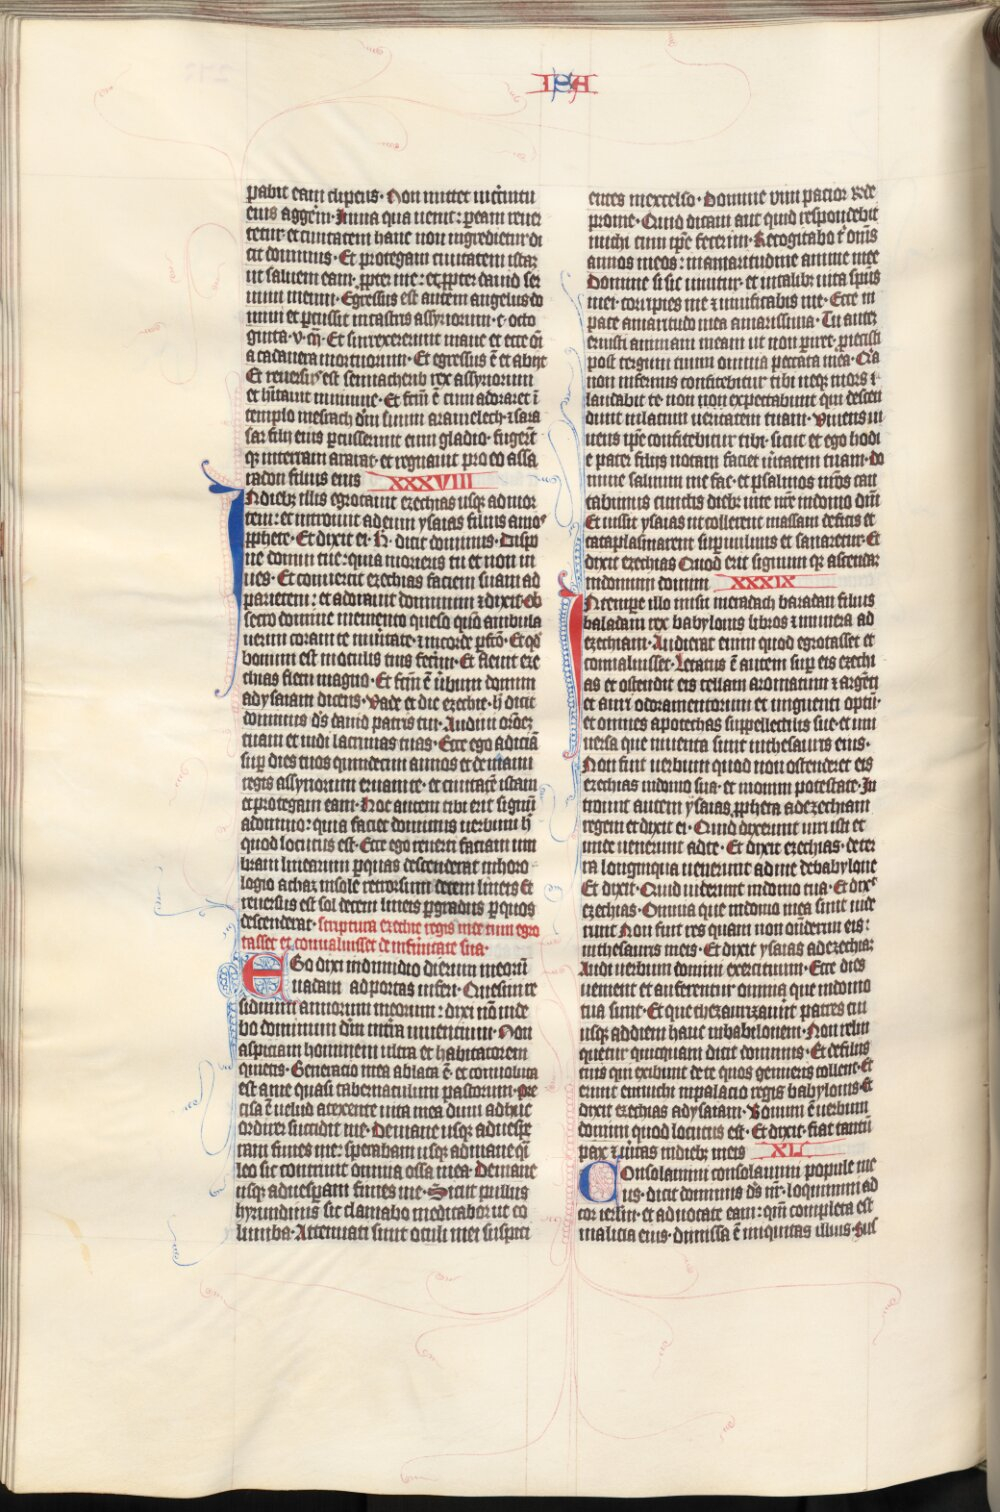 IPA
pabit eam clipeus. Non mittet incircuitu
eius aggerem. Inuia qua uenit: peam reuer
tetur et ciuitatem hanc non ingredietur di
cit dominus. Et protegam ciuitatem istaz
ut saluem eam. ppter me: et ppter dauid ser
uum meum. Egressus est autem angelus do
mini et pcussit incastris assyriorum. c. octo
ginta. v. m. Et surrexerunt mane et ecce oi
a cadauera mortuorum. Et egressus e et abijt
Et reuersus est sennacherib rex assyriorum
et hitauit inniniue. Et fcm e cum adoraret i
templo mesrach dm suum aramelech. 7 sara
sar filij eius pcusserunt eum gladio. fugert
q; interram ararat. et regnauit pro eo assa
radon filius eius XXXVIII
Ndieb; illis egrotauit ezechias usq; ad mor
tem: et introiuit ad eum ysaias filius amos
pphete. Et dixit ei. H. dicit dominus. Dispo
ne domui tue: quia morieris tu et non ui
ues. Et conuertit ezechias faciem suam ad
parietem: et adorauit dominum 7 dixit. Ob
secro domine memento queso quo ambula
uerim coram te inuitate. 7 incorde pfco. Et qd
bonum est inoculis tuis fecim. Et fleuit eze
chias fletu magno. Et fcm e ubum domini
ad ysaiam dicens. Vade et dic ezechie. h dicit
dominus ds dauid patris tui. Audiui oroez
tuam et uidi lacrimas tuas. Ecce ego adicia
sup dies tuos quindecim annos et demanu
regis assyriorum eruam te. et ciuitate istam
et protegam eam. Hoc autem tibi erit signu
adomino: quia faciet dominus uerbum h
quod locutus est. Ecce ego reuerti faciam um
bram linearum p quas descenderat inhoro
logio achaz insole retrorsum decem lineis Et
reuersus est sol decem lineis p gradus p quos
descenderat. scriptura ezechie regis iude cum egro
tasset et conualuisset de infirmitate sua.
EGo dixi indimidio dierum meoru
uadam ad portas inferi. Quesiui re
siduum annorum meorum: dixi no uide
bo dominum dm intra uiuentium. Non
aspiciam hominem ultra et habitatorem
quietis. Generacio mea ablata e. et conuoluta
est a me quasi tabernaculum pastorum. Pre
cisa e uelud atexente uita mea dum adhuc
ordirer succidit me. De mane usq; ad uespe
ram finies me: sperabam usq; ad mane qi
leo sic contriuit omnia ossa mea. De mane
usq; ad uesperam finies me. Sicut pullus
hyrundinis sic clamabo meditabor ut co
lumba. Attenuati sunt oculi mei suspici
entes inexcelso. Domine uim pacior re
prome. Quid dicam aut quid respondebit
michi cum ipe fecerim. Recogitabo t omis
annos meos: inamaritudine anime mee
Domine si sic uiuitur. et intalib; uita spus
mei. corripies me 7 uiuificabis me. Ecce in
pace amaritudo mea amarissima. Tu autez
eruisti animam meam ut non piret. proiecisti
post tergum tuum omnia peccata mea. Qia
non infernus confitebitur tibi neq; mors l
laudabit te. non non expectabunt qui descen
dunt inlacum ueritatem tuam. Viuens ui
uens ipe confitebitur tibi. sicut et ego hodi
e. pater filijs notam faciet uitatem tuam. do
mine saluum me fac. et psalmos nros can
tabimus cunctis dieb; uite nre indomo dni
Et iussit ysaias ut tollerent massam deficis et
cataplasmarent sup uulnus et sanaretur. Et
dixit ezechias Quod erit signum qz ascendaz
indomum domini XXXIX
INtempe illo misit merodach baradan filius
baladam rex babylonis libros 7 munera ad
ezechiam. Audierat enim quod egrotasset et
conualuisset. Letatus e autem sup eis ezechi
as et ostendit eis cellam aromatum 7 argenti
et auri odoramentorum et unguenti optii.
et omnes apothecas suppellectilis sue. et uni
uersa que inuenta sunt inthesauris eius.
Non fuit uerbum quod non ostenderet eis
ezechias indomo sua. et inomni potestate. In
troiuit autem ysaias ppheta ad ezechiam
regem et dixit ei. Quid dixerunt uiri isti et
unde uenerunt adte. Et dixit ezechias. de ter
ra longinqua uenerunt ad me debabylone
Et dixit. Quid uiderunt indomo tua. Et dix
ezechias. Omnia que indomo mea sunt uide
runt Non fuit res quam non ostenderim eis:
inthesauris meis. Et dixit ysaias ad ezechiaz
Audi uerbum domini exercituum. Ecce dies
uenient et auferentur omnia que indomo
tua sunt. Et que thezaurizauert patres tui
usq; addiem hanc inbabilonem. Non relin
quetur quicquam dicit dominus. Et de filijs
tuis qui exibunt de te quos genueris tollent. Et
erunt eunuchi inpalacio regis babylonis. Et
dixit ezechias ad ysaiam. Bonum e uerbum
domini quod locutus est. Et dixit. fiat tantu
pax 7 uitas indieb; meis XL
COnsolamini consolamini popule me
us. dicit dominus ds nr. loquimini ad
cor ierlm. et aduocate eam: qm completa est
malicia eius. dimissa e iniquitas illius. Sus